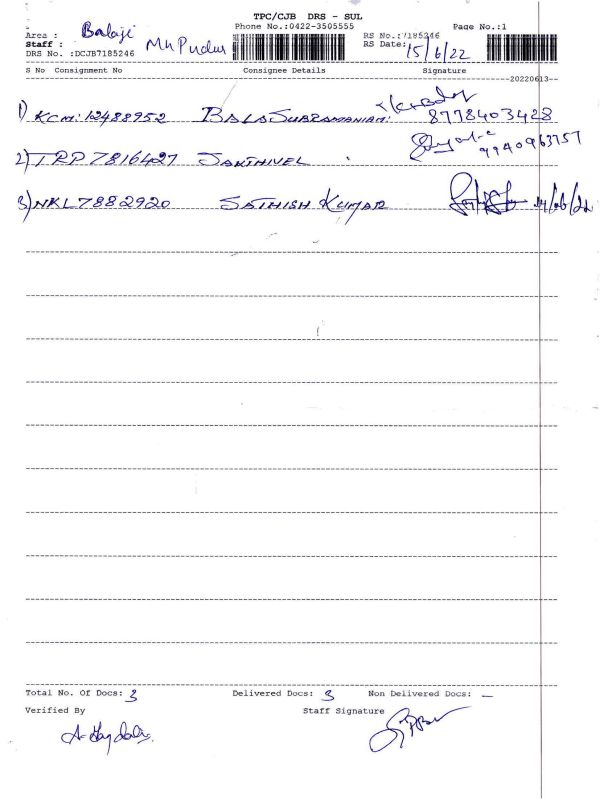 TPC/CJB DRS - SUL
Phone No.:0422-3505555
Page No.:1
Area : Balaji
Staff : M K Pudur
DRS No. :DCJB7185246
RS No.:7185246
RS Date: 15/6/22
S No Consignment No Consignee Details Signature
20220613--
1) KCM: 12488952 BALASUBRAMANIAM: 8778403428
2) TRP 7816427 SAKTHIVEL 9940963757
3) NKL 7882920 SATHISH KUMAR
Total No. Of Docs: 3 Delivered Docs: 3 Non Delivered Docs: —
Verified By Staff Signature